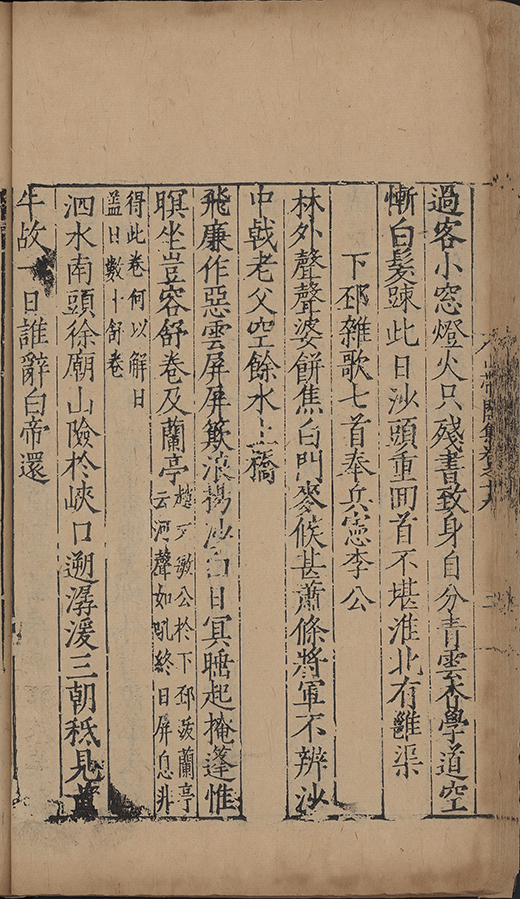 山帶閣集卷之
過客小窓燈火只殘書致身自分青雲杳學道空
慚白髮踈此日沙頭重囬首不堪淮北有雝渠
下邳雜歌七首奉兵憲李公
林外聲聲婆餅焦白門麥候甚蕭條將軍不辨沙
中戟老父空餘水上橋
飛廉作惡雲屏屏簸浪揚沙白日冥睡起掩篷惟
瞑坐豈容舒卷及蘭亭
趙文敏公於下邳蘭亭
云河聲如吼終日屏息非
得此卷何以解日
蓋日數十舒卷
泗水南頭徐廟山險於峽口遡潺湲三朝秪見黃
牛故一日誰辭白帝還